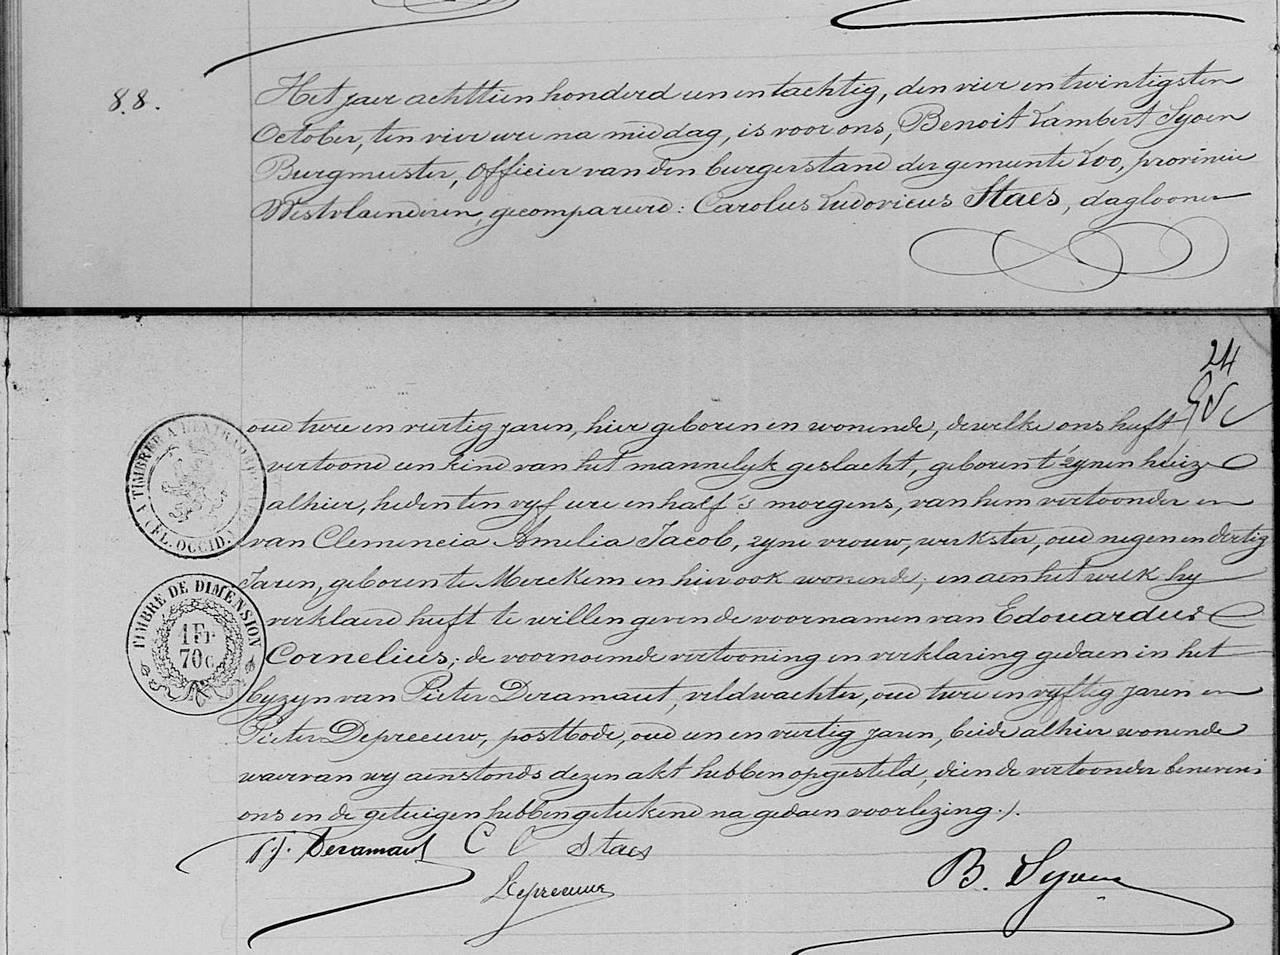 88.
Het jaer achttien honderd een en tachtig, den vier en twintigsten
October, ten vier ure na middag, is voor ons, Benoit Lambert Syoen
Burgmeester, Officier van den burgerstand der gemeente Loo, provincie
Westvlaenderen, gecompareerd: Carolus Ludovicus Staes, daglooner
24
oud twee en veertig jaren, hier geboren en wonende, dewelke ons heeft
vertoond een kind van het mannelyk geslacht, geboren t'zynen huize
alhier, heden ten vyf ure en half 's morgens, van hem vertoonder en
van Clemencia Amelia Jacob, zyne vrouw, werkster, oud negen en dertig
Jaren, geboren te Merckem en hier ook wonende; en aen het welk hy
verklaerd heeft te willen geven de voornamen van Edouardus
Cornelius; de voornoemde vertooning en verklaring gedaen in het
byzyn van Pieter Deramaut, veldwachter, oud twee en vyftig jaren en
Pieter Depreeuw, postbode, oud een en veertig jaren, beide alhier wonende
waervan wy aenstonds dezen akt hebben opgesteld, dien de vertoonder benevens
ons en de getuigen hebben geteekend na gedaen voorlezing./.
TIMBRE A L'EXTRAORD
(FL. OCCID.)
TIMBRE DE DIMENSION
1 Fr.
70 c.
P.J. Deramaut C L Staes
Depreeuw
B. Syoen